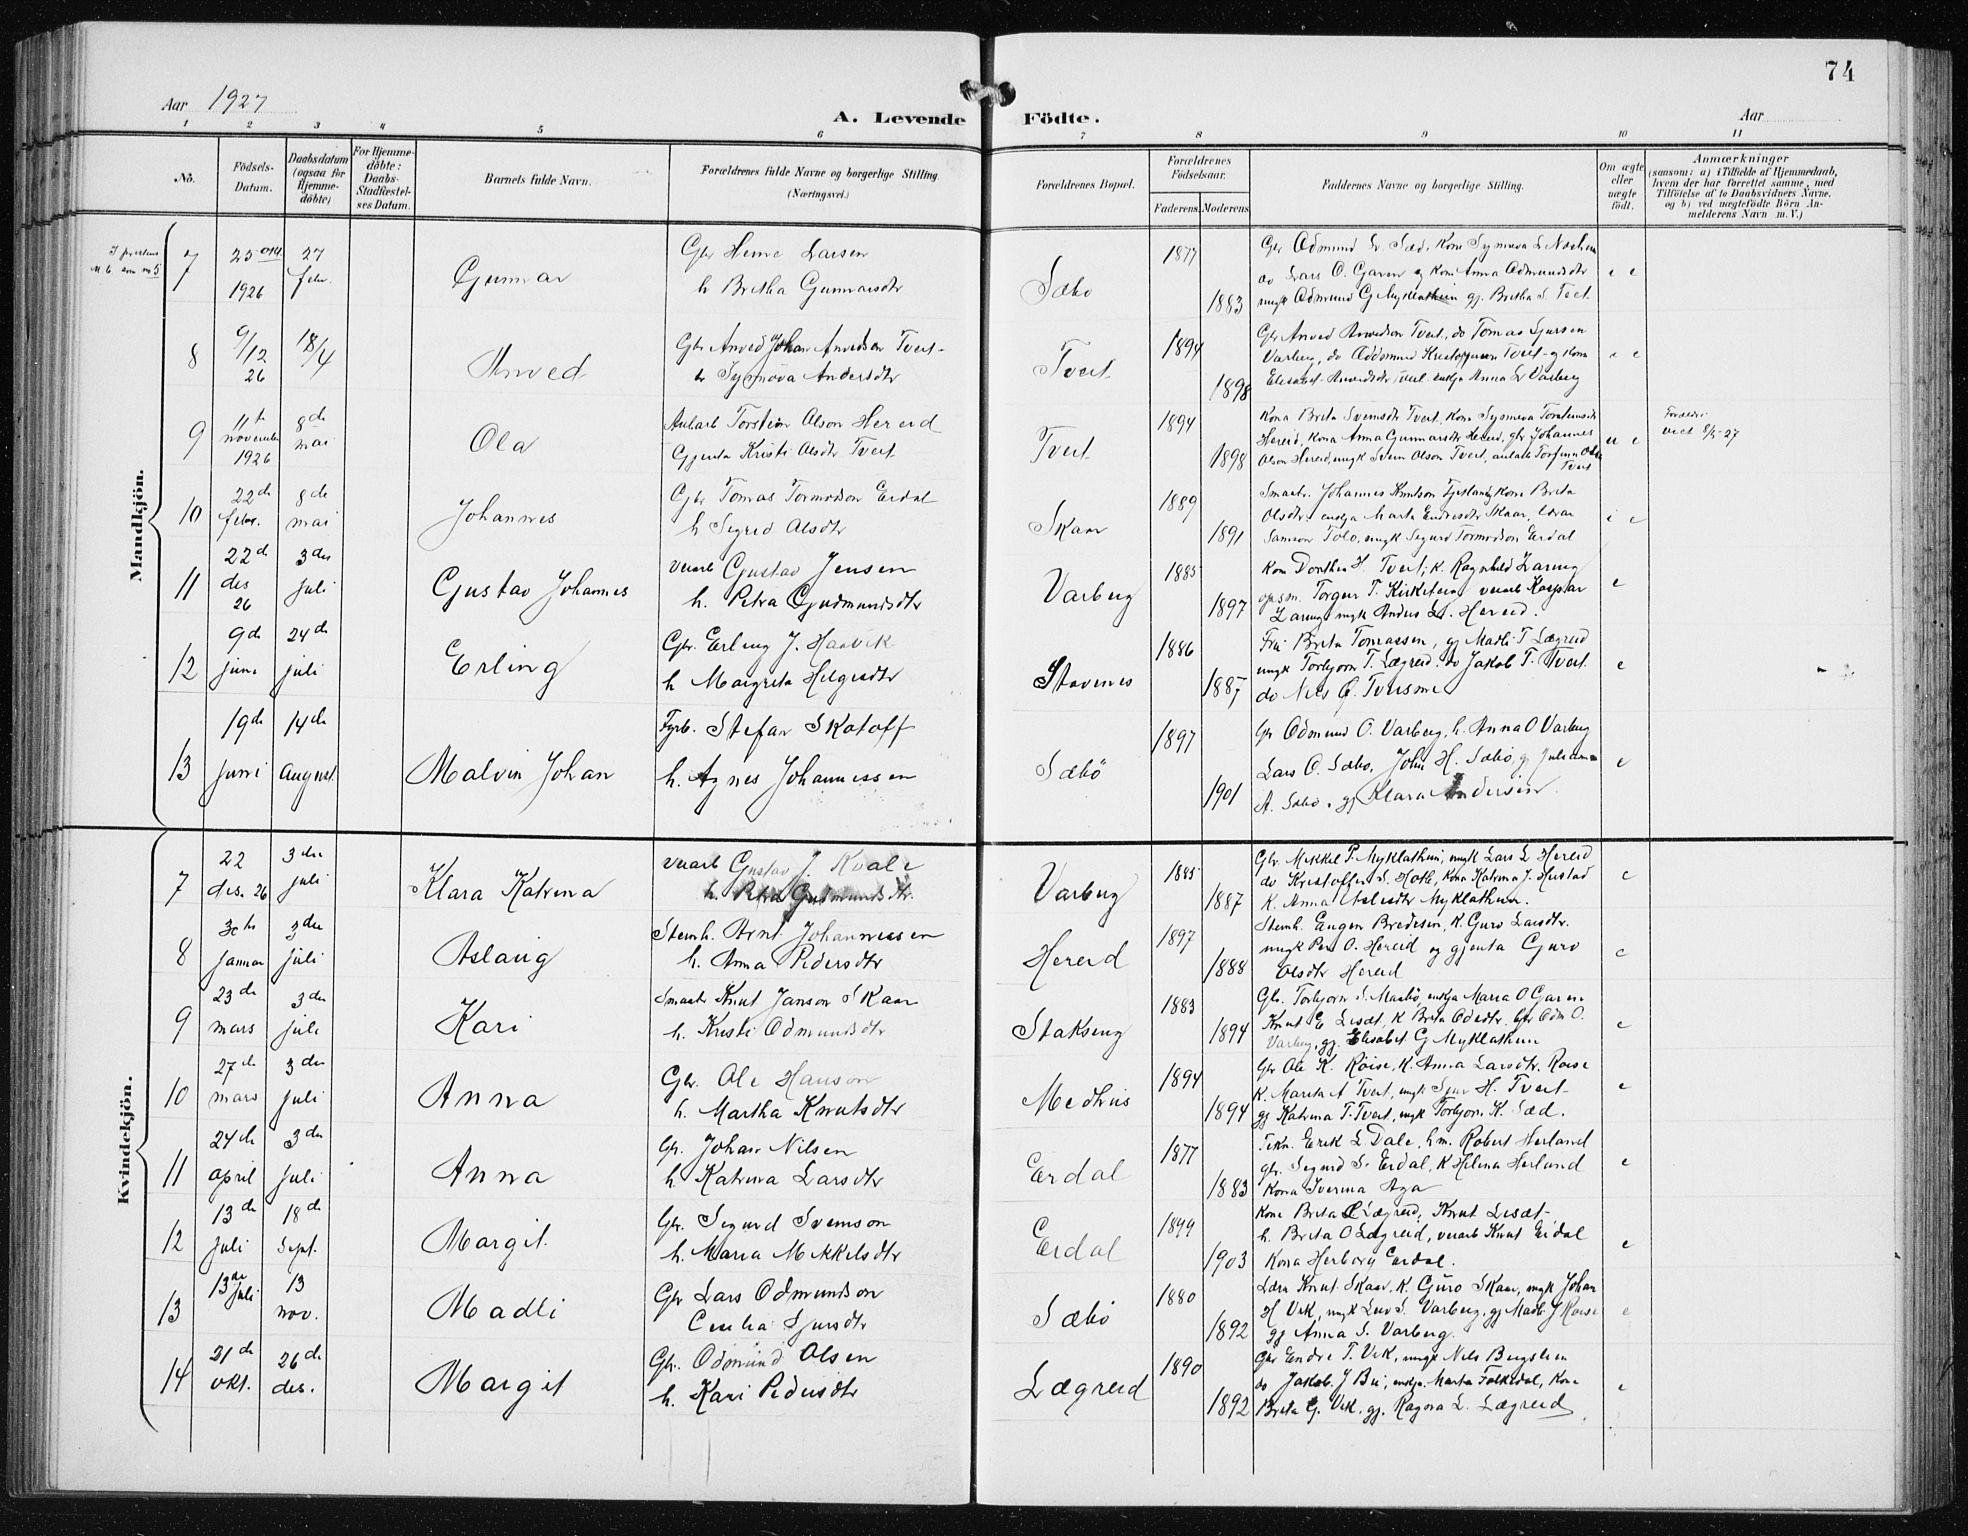 74
Aar 1927
A. Levende Födte.
Aar
1 2 3 4 5 6 7 8 9 10 11
No.
Födsels-Datum.
Daabsdatum (ogsaa for Hjemme-döbte)
For Hjemme-döbte: Daabs-Stadfæstel-ses Datum.
Barnets fulde Navn.
Forældrenes fulde Navne og borgerlige Stilling. (Næringsvei.)
Forældrenes Bopæl.
Forældrenes Födselsaar.
Faderens. Moderens.
Faddernes Navne og borgerlige Stilling.
Om ægte eller uægte födt.
Anmærkninger
(saasom: a) i Tilfælde af Hjemmedaab,
hvem der har forrettet samme, med
Tilföielse af to Daabsvidners Navne.
og b) ved uægtefödte Börn An-
melderens Navn m. V.)
Mandkjön.
7 25 1926 27 febr. Gunnar
Gbr Heine Larsen
h Bretha Gunnarsdtr
Sæbo 1877 1883
Gbr Odmund
Lars O. Garen og kona Anna Odmundsdtr
ungk Odmund G Myklathun gj. Bretha S. Tveit
8 9/12 26 18/4 Anved
Gbr Anved Johan Anvedson Tveit
h Synnøva Andersdtr
Tveit 1894 1898
Gbr Anved Anvedson Tveit, do Tomas Sjursen
Varberg, do Oddmund Kristoffersen Tveit og kona
Elisabet Anvedsdtr Tveit enkja Anna Varberg
9 11te november 1926 8de mai Ola
Anlarb Torstein Olson Hereid
Gjenta Kristi Olsdtr Tveit
Tveit 1894 1898
Kona Brita Sveinsdtr Tveit, kona Synneva Torsteinsdtr
Hereid, kona Anna Gunnarsdtr Hereid, gbr Johannes
Olson Hereid, ungk Svein Olson Tveit, anlarb Torfinn Olson
Tveit
u e
viet 8/5-27
10 22de febr. 8de mai Johannes
Gbr Tomas Tormodson Erdal
h Sigrid Olsdtr
Skaar 1889 1891
Smaabr. Johannes Knutson og kona Brita
Olsdtr. enkja Marta Endresdtr Skaar, lærar
Samson Tolo, ungk Sigurd Tormodson Erdal
11 22de des 26 3die juli Gustav Johannes
Verarb Gustav Jensen
h. Petra Gudmundsdtr
Varberg 1885 1897
Kona Dorthea H. Tveit, k. Ragnhild Laring
opsm. Torger T. Kirketeig verarb Kasper
Laring ungk Anders L. Hereid.
e
12 9de juni 24de juli Erling
Gbr. Erling J. Haavik
h Margreta Helgesdtr
Stavenes 1886 1887
Fru Brita Tomassen, gj Madli T Lægreid
ungk Torbjørn T. Lægreid. do Jakob T. Tveit
do Nils G. Tveisme
e
13 19de juni 14de August. Malvin Johan
Fyrb. Stefan Skotoff
h. Agnes Johannessen
Sæbö 1897 1901
Gbr Odmund O. Varberg, h. Anna O Varberg
Lars O. Sæbo, John H. Sæbö, gj Julianna
A. Sæbo, gj Klara Andersen.
e
Kvindekjön.
7 22 des. 26 3die juli Klara Katrina
Verarb Gustav J. Kvale
h. Petra Gudmundsdtr.
Varberg 1885 1887
Gbr. Mikkel P. Myklathun, ungk Lars L Hereid
do Kristoffer S. Hotle, kona Katrina J. Hustad
k. Anna Aslesdtr Myklathun.
e
8 30te januar 3die juli Aslaug
Steinh. Arnt Johannessen
h. Anna Pedersdtr
Hereid 1897 1888
Steinh. Eugen Bredesen, k. Guro Larsdtr.
ungk Per O. Hereid og gjenta Guro
Olsdtr Hereid
e
9 23de mars 3die juli Kari
Smaabr Knut Janson Skaar
h. Kristi Odmundsdtr
Stakseng 1883 1894
Gbr. Torbjørn S. Maabø, enkja Maria O Garen
Knut E Lisæt, k Brita gbr Odm O.
Varberg, gj. Elisabet G Myklathun
e
10 27de mars 3die juli Anna
Gbr. Ole Hanson
h. Martha Knutsdtr
Medhus 1894 1894
Gbr Ole K. Röise, k. Anna Larsdtr. Roise
k. Marita A Tveit, ungk Sjur H. Tveit
gj Katrina T. Tveit, ungk Torbjørn K. Sæd.
e
11 24de april 3die juli Anna
Gbr. Johan Nilsen
h. Katrina Larsdtr
Erdal 1877 1883
Tekn. Erik L Dale, hm. Robert Herland
gbr. Sigurd S. Erdal, k Helena Herland
kona Iverina Aga
e
12 13de juli 18de Sept. Margit
Gbr. Sigurd Sveinson
h. Maria Mikkelsdtr
Erdal 1899 1903
Kona Brita Lægreid, Knut Lisæt
h. Brita O Lægreid, verarb Knut Erdal
Kona Herborg Erdal.
e
13 13de juli 13 nov. Madli
Gbr Lars Odmundson
Cecilia Sjursdtr
Sæbö 1880 1892
Lærar Knut Skaar, k. Guro Skaar, ungk Johan
H Vik, ungk Leiv S. Varberg, gj Madli J Roise
gj Anna S. Varberg.
e
14 21de okt. 26de des. Margit
Gbr. Odmund Olsen
h. Kari Pedersdtr
Lægreid 1890 1892
Gbr Endre T. Vik, ungk Nils Bergstein
do Jakob J Bu, enkja. Marta Folkedal, Kona
Brita G. Vik, gj. Ragna L. Lægreid
e